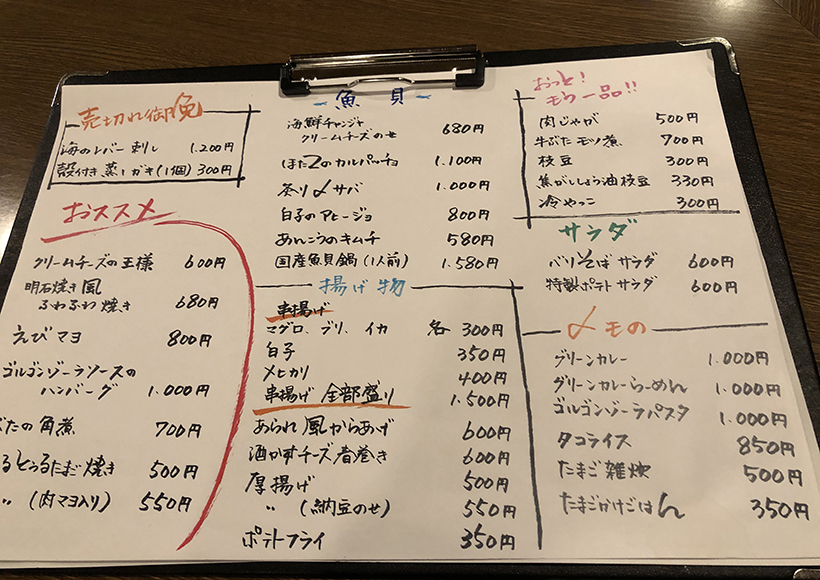 売切れ御免
海のレバー刺し 1.200円
殻付き蒸しガキ(1個) 300円
おススメ
クリームチーズの王様 600円
明石焼き風
ふわふわ焼き 680円
えびマヨ 800円
ゴルゴンゾーラソースの
ハンバーグ 1.000円
ぶたの角煮 700円
るとろるたまご焼き 500円
〃 (肉マヨ入り) 550円
魚貝
海鮮チャンジャ
クリームチーズのせ 680円
ほたてのカルパッチョ 1.100円
炙り〆サバ 1.000円
白子のアヒージョ 800円
あんこうのキムチ 580円
国産魚貝鍋(1人前) 1.580円
揚げ物
串揚げ
マグロ、ブリ、イカ 各 300円
白子 350円
メヒカリ 400円
串揚げ 全部盛り 1.500円
あられ風からあげ 600円
酒かすチーズ春巻き 600円
厚揚げ 500円
〃 (納豆のせ) 550円
ポテトフライ 350円
おっと!
もう一品!!
肉じゃが 500円
牛ぶたモツ煮 700円
枝豆 300円
焦がししょう油枝豆 330円
冷やっこ 300円
サラダ
バリそばサラダ 600円
特製ポテトサラダ 600円
〆もの
グリーンカレー 1.000円
グリーンカレーらーめん 1.000円
ゴルゴンゾーラパスタ 1.000円
タコライス 850円
たまご雑炊 500円
たまごかけごはん 350円